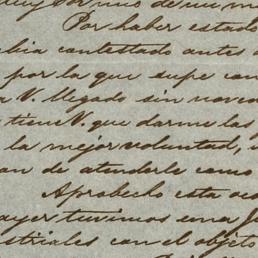 por uno de un m
Por haber estado
bia contestado antes a
por la que supe con
a V. llegado sin noved
tiene V. que darme las
la mejor voluntad,
an de atenderle como
Aprobecho esta oca
ayer tuvimos una J
striales con el objeto